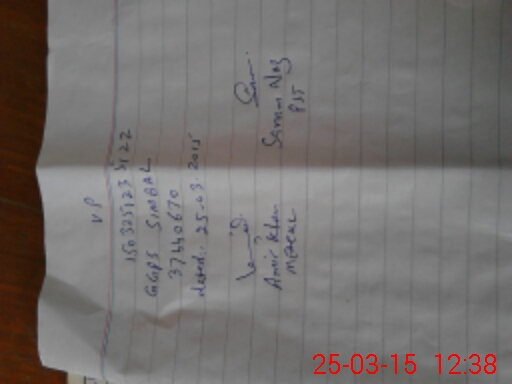 VP
150325123122
GGPS SIMBAL
37440670
dated: 25.03.2015
Amir Khan
Saram Naz
PST
25-03-15 12:38